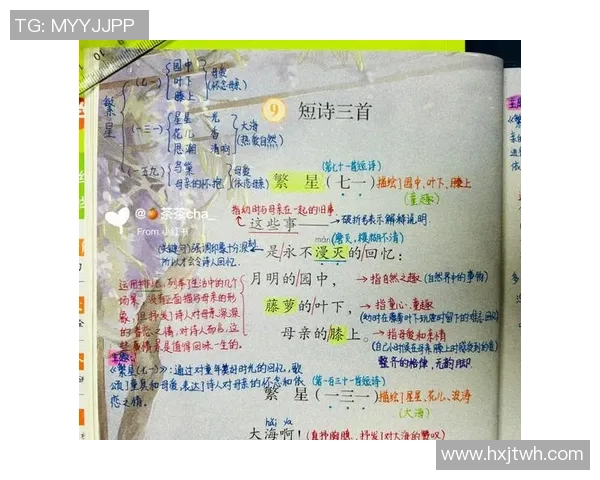 TG: MYYJJPP
繁星
(七一)
园中
叶下
膝上
母爱
(怀念母亲)
(一三一)
星星 光
花儿 香
思潮 清响
大海
(热爱自然)
(一五九)
鸟巢
母亲的怀抱
母爱
(依恋母亲)
9 短诗三首
(第七十一首短诗)
繁星(七一) 描绘了园中、叶下、膝上
(童趣)
指幼时与母亲在一起的旧事
这些事—— →破折号表示解释说明。
màn (磨灭,模糊不清)
是/永不漫灭的/回忆:
(关键句)强调印象十分深刻
所以才会令诗人回忆。
月明的/园中, →指自然之趣(自然界中的事物)
藤萝的/叶下, →指童心、童趣
母亲的/膝上。 →指母爱和亲情
整齐的格律,无韵脚
运用排比,列举了生活中的几个
场景,没有正面描写母亲的形
象,但抒发了诗人对母亲深深
的眷恋之情,对诗人而言,这
些事情是值得回味一生的。
主题:
《繁星(七一)》:通过对童年美好时光的回忆,歌
颂了童真和母爱,表达了诗人对母亲的怀念和依
恋之情。
(第一百三十一首短诗)
繁星(一三一) 描绘了星星、花儿、波涛
(大海)
hǎi ya
大海啊! (直抒胸臆,抒发了对大海的赞叹
@茶茶cha_
From 小红书
www.hxjtwh.com